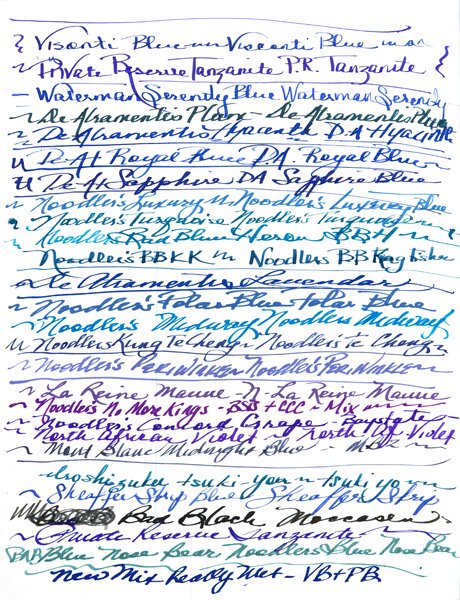 Visconti Blue Visconti Blue
Private Reserve Tanzanite P.R. Tanzanite
Waterman Serenity Blue Waterman Serenity
De Atramentis Plum - De Atramentis Plum
De Atramentis Hyacinth D.A Hyacinth
De At Royal Blue DA Royal Blue
De At Sapphire DA Sapphire Blue
Noodler's Luxury Noodler's Luxury Blue
Noodler's Turquoise Noodler's Turquoise
Noodlers Bad Blue Heron BBH
Noodler's BBKK Noodlers BB Kingfisher
De Atramentis Lavendar
Noodler's Polar Blue Polar Blue
Noodler's Midway Noodlers Midway
Noodlers Kung Te Cheng Noodlers Te Cheng
Noodler's Periwinken Noodler's Periwinken
La Reine Mauve N - La Reine Mauve
Noodlers No More Kings - BSB + CCC - Mix
Noodler's Concord Grape - Baystate
North African Violet - North Af. Violet
Mont Blanc Midnight Blue -
Iroshizuku tsuki-yo tsuki yo
Sheaffer Skrip blue Sheaffer Skrip
Bad Black Moccasin
Private Reserve Tanzanite
BNB Blue Nose Bear Noodlers Blue Nose Bear
New Mix Really Wet - VB + PB